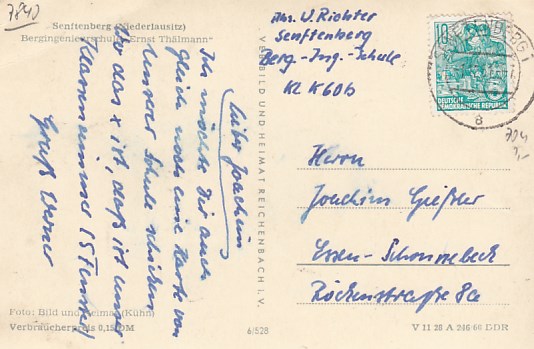 7840
Senftenberg (Niederlausitz)
Bergingenieurschule „Ernst Thälmann"
Lieber Joachim
Ich möchte Dir auch
gleich noch eine Karte von
unserer Schule schicken
Wo das x ist, das ist unser
Klassenzimmer
Gruß Werner
Foto: Bild und Heimat (Kühn)
Verbraucherpreis 0,15 DM
VERLAG BILD UND HEIMAT REICHENBACH I. V.
6/528
V 11 28 A 246/60 DDR
Abs. W. Richter
Senftenberg
Berg.-Ing.-Schule
Kl K60b
10
DEUTSCHE
DEMOKRATISCHE REPUBLIK
SENFTENBERG 1
a
Herrn
Joachim Gießler
Essen-Schonnebeck
Röckenstraße 8a